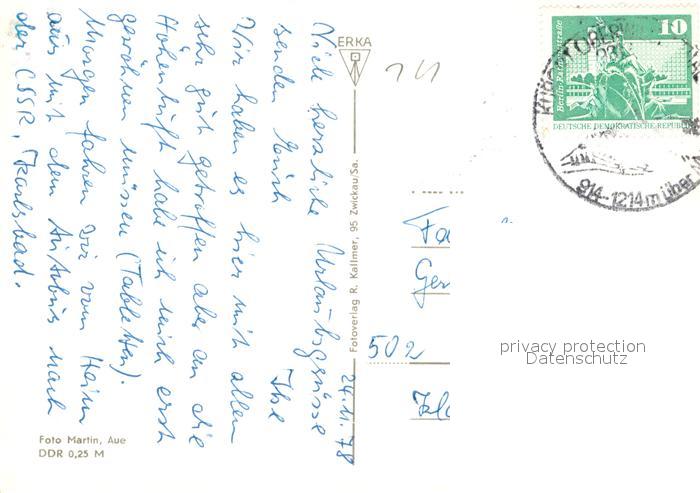 24.11.78
Viele herzliche Urlaubsgrüsse
senden Euch Ihre
Wir haben es hier mit allem
sehr gut getroffen aber an die
Höhenluft habe ich mich erst
gewöhnen müssen (Tabletten).
Morgen fahren wir vom Heim
aus mit dem Autobus nach
der CSSR, Karlsbad.
Foto Martin, Aue
DDR 0,25 M
ERKA
Fotoverlag R. Kallmer, 95 Zwickau/Sa.
Fa
Ger
502
Berlin-Rathausstraße
10
DEUTSCHE DEMOKRATISCHE REPUBLIK
914-1214m über
privacy protection
Datenschutz